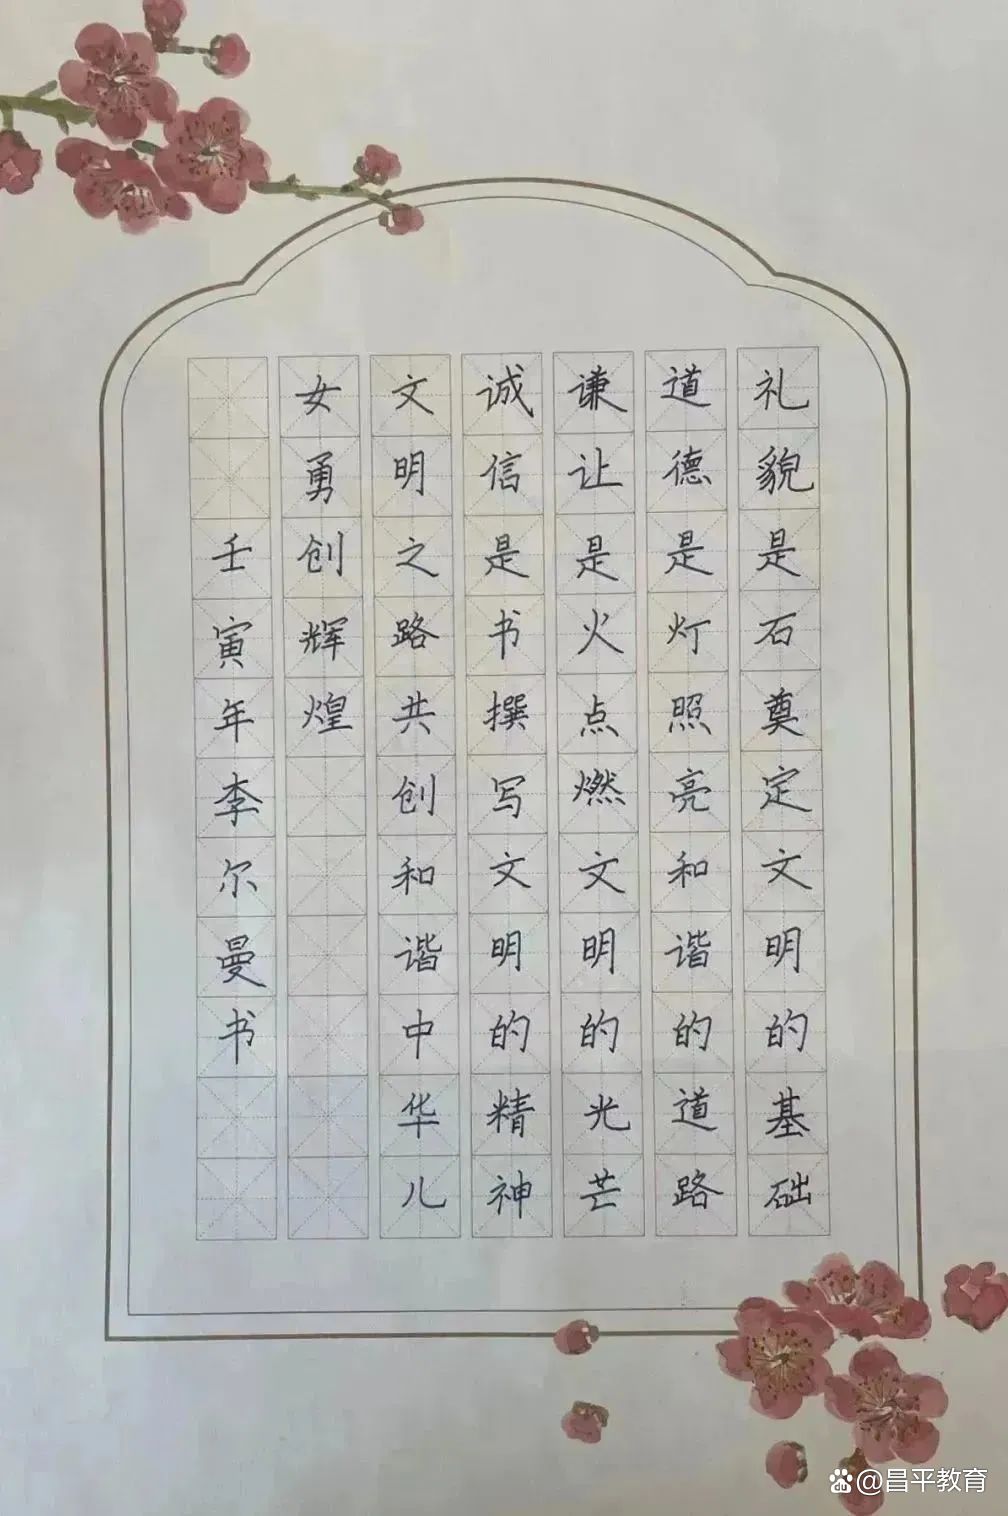 礼貌是石奠定文明的基础
道德是灯照亮和谐的道路
谦让是火点燃文明的光芒
诚信是书撰写文明的精神
文明之路共创和谐中华儿
女勇创辉煌
壬寅年李尔曼书
@昌平教育